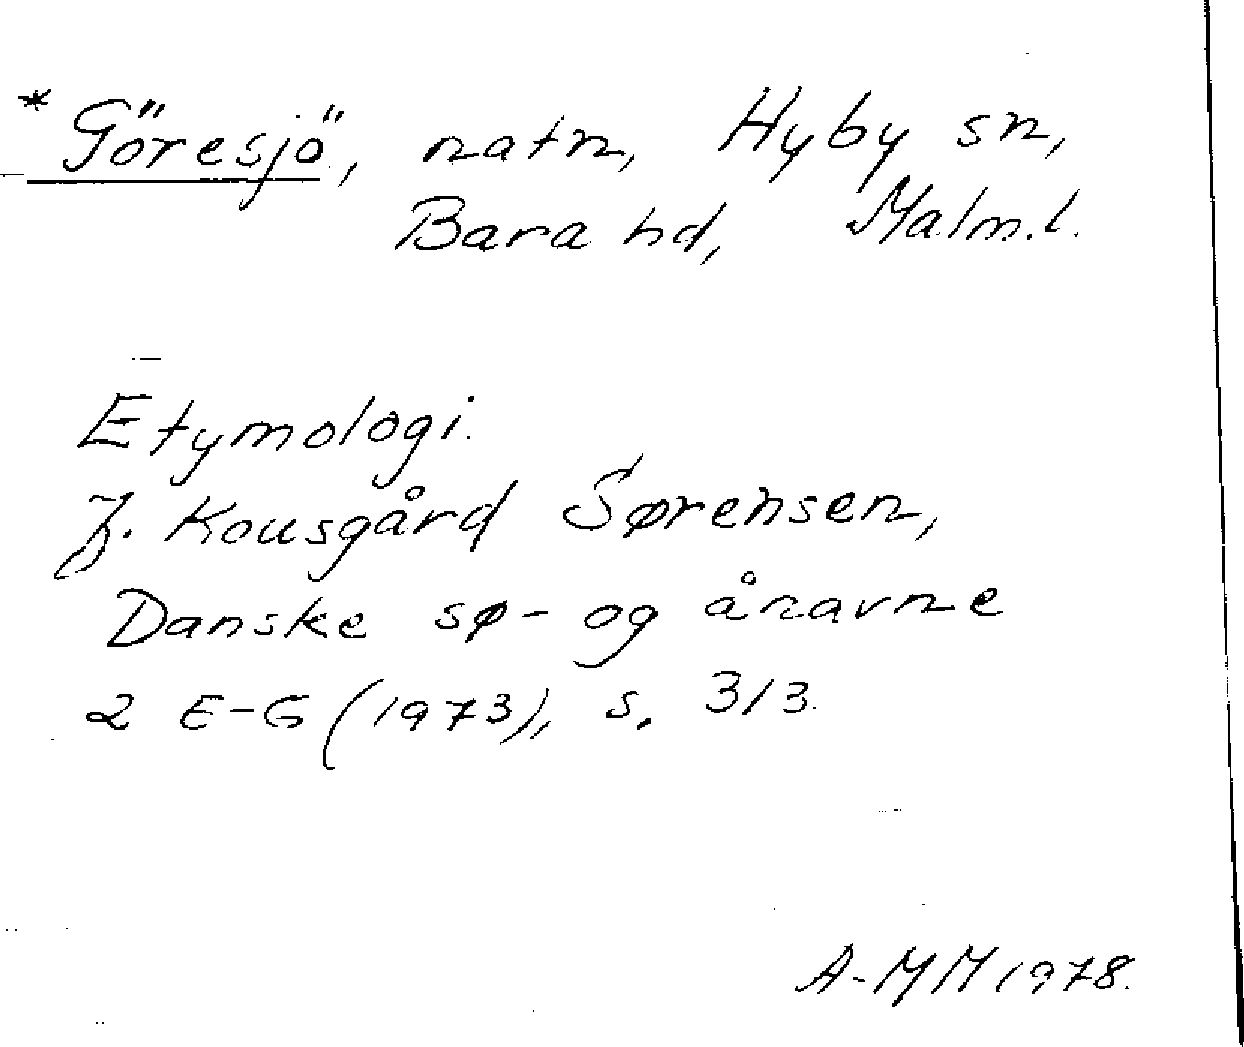 *Göresjö, natn, Hyby sn,
Bara hd, Malm.l.
Etymologi.
J. Kousgård Sørensen,
Danske sø- og ånavne
2 E-G (1973), s. 313.
A-MM 1978.